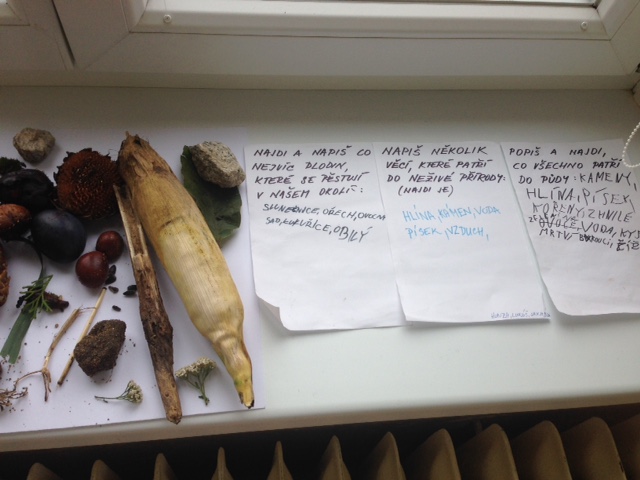 NAJDI A NAPIŠ CO
NEJVÍC PLODIN,
KTERÉ SE PĚSTUJÍ
V NAŠEM OKOLÍ:
SLUNEČNICE, OŘECH,
SAD, KUKUŘICE, OBILÝ
NAPIŠ NĚKOLIK
VĚCÍ, KTERÉ PATŘÍ
DO NEŽIVÉ PŘÍRODY:
(NAJDI JE)
HLÍNA, KÁMEN, VODA
PÍSEK, VZDUCH,
POPIŠ A NAJDI,
CO VŠECHNO PATŘÍ
DO PŮDY: KAMENY,
HLÍNA, PÍSEK,
KOŘENY, ZHNILÉ
VODA,
MRTVÍ